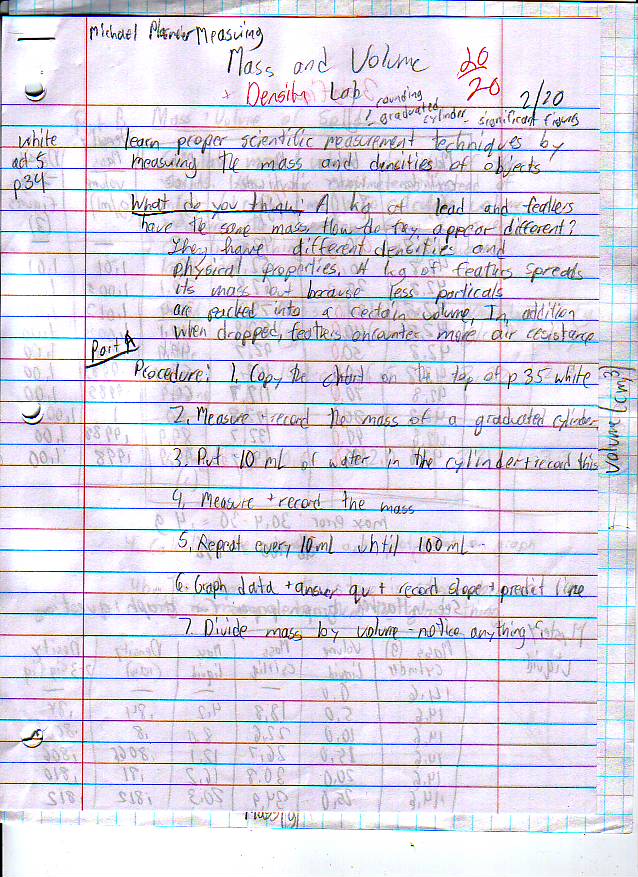 Michael Measuring
Mass and Volume 20/20
+ Density Lab
rounding
graduated cylinder, significant figures
2/20
white
act 5
p34
learn proper scientific measurement techniques by
measuing the mass and densities of objects
What do you think: A kg of lead and feathers
have the same mass. How do they appear different?
They have different densities and
physical properties. A kg of feathers spreads
its mass out because less particals
are packed into a certain volume. In addition
when dropped, feathers encounter more air resistance
Part A
Procedure: 1. Copy the chart on the top of p 35 white
2. Measure + record the mass of a graduated cylinder
3. Put 10 mL of water in the cylinder + record this
4. Measure + record the mass
5. Repeat every 10 mL until 100 mL
6. Graph data + answer qu + record slope + predict line
7. Divide mass by volume - notice anything?
Volume (cm³)